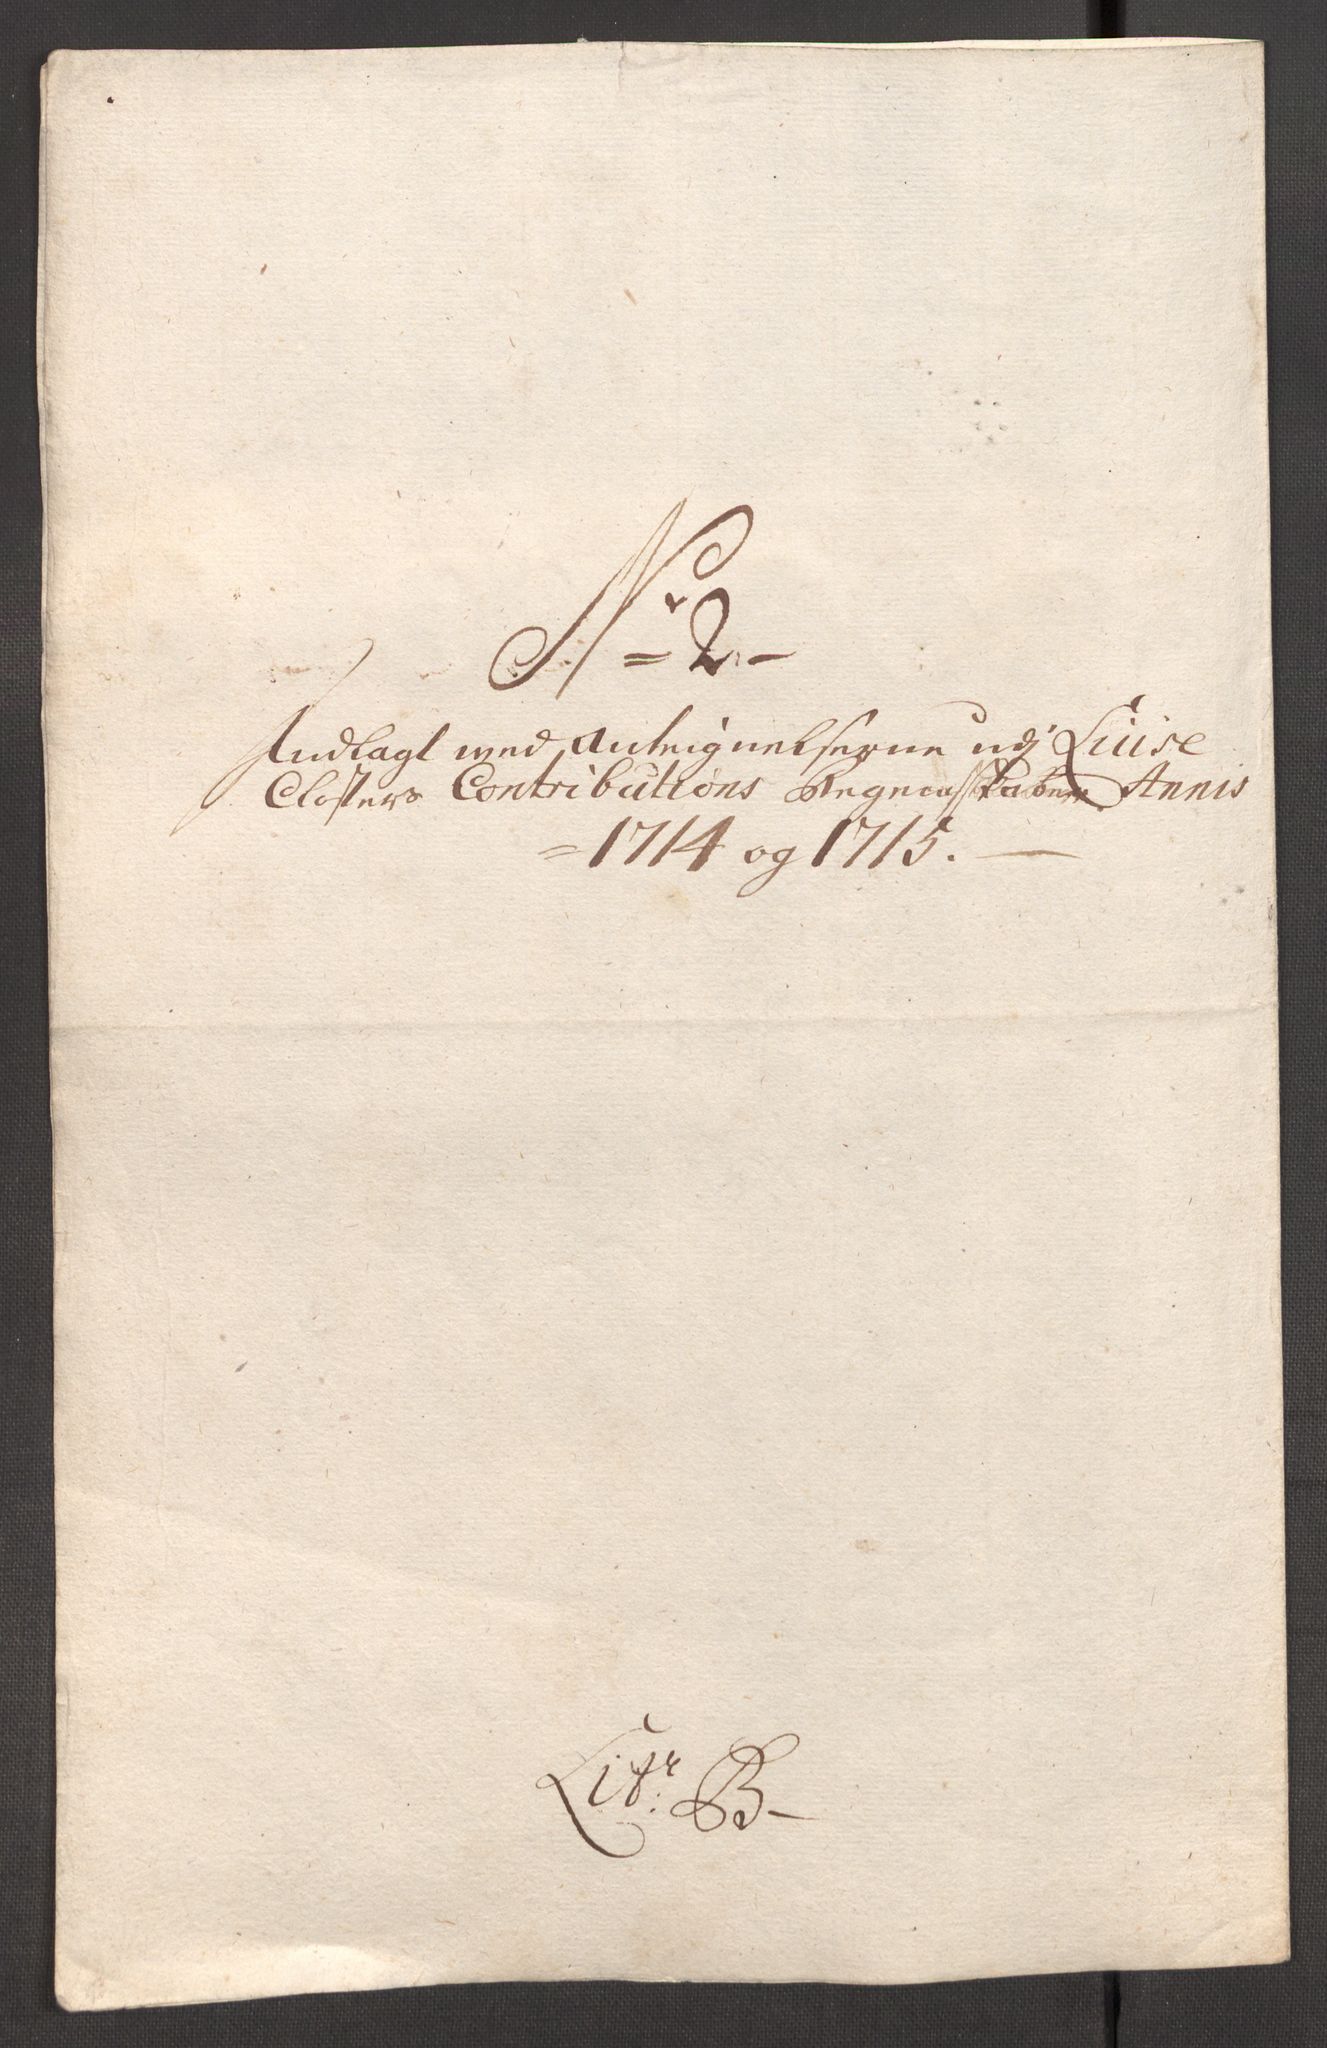 No 2
Indlagt med Anteignelserne udj Liuse
Closters Contributions Regenskaber Annis
1714 og 1715.
Litr: B